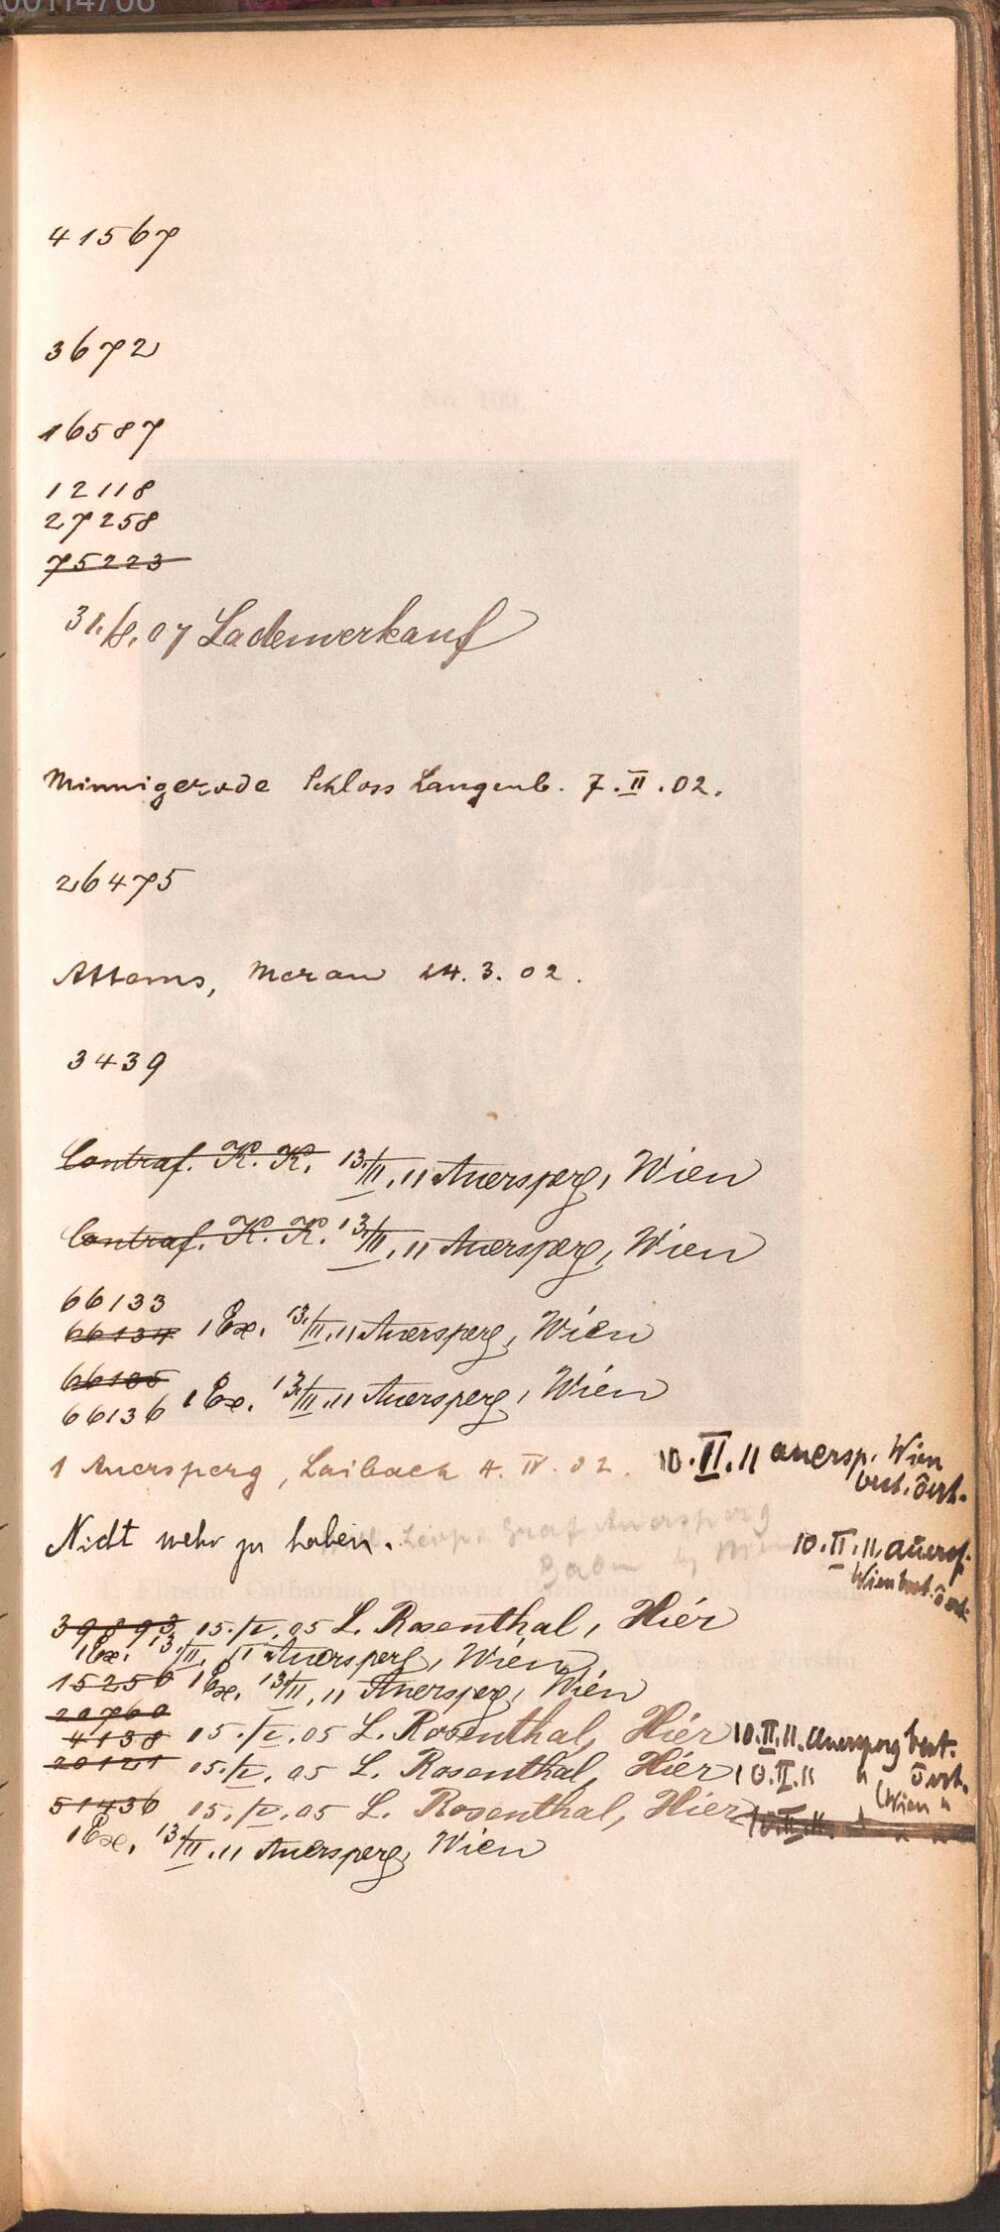 00114706
41567
3672
16587
12118
27258
75223
31./8.07 Ladenverkauf
Minnigerode Schloss Langenb. 7.II.02.
26475
Attems, Meran 24.3.02.
3439
Contraf. K.K. 13./II.11 Auersperg, Wien
Contraf. K.K. 13./II.11 Auersperg, Wien
66133
66134 1 Ex. 13./II.11 Auersperg, Wien
66135
66136 1 Ex. 13./II.11 Auersperg, Wien
1 Auersperg, Laibach 4.IV.02. 10.II.11 Auersp. Wien
best. öst.
Nicht mehr zu haben. Leop. Graf Auersperg 10.II.11. Auersp.
Baden Wien best.
39893 15./V.05 L. Rosenthal, Hier
1 Ex. 13./II.11 Auersperg, Wien
15256 1 Ex. 13./II.11 Auersperg, Wien
20760
4138 15./V.05 L. Rosenthal, Hier 10.II.11. Auersperg best.
20121 15./V.05 L. Rosenthal, Hier 10.II.11 " öst.
(Wien "
51436 15./V.05 L. Rosenthal, Hier 10.II.11.
1 Ex. 13./II.11 Auersperg, Wien